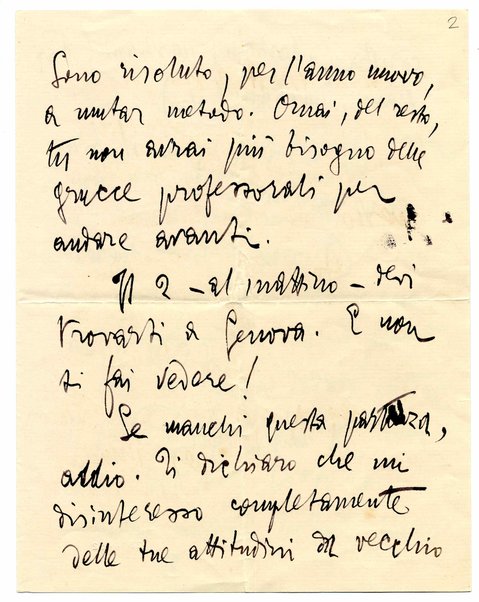 2
Sono risoluto, per l'anno nuovo,
a mutar metodo. Ormai, del resto,
tu non avrai più bisogno delle
grucce professorali per
andare avanti.
Il 2 - al mattino - devi
trovarti a Genova. E non
ti fai vedere!
Se manchi questa partenza,
addio. Ti dichiaro che mi
disinteresso completamente
delle tue attitudini da vecchio